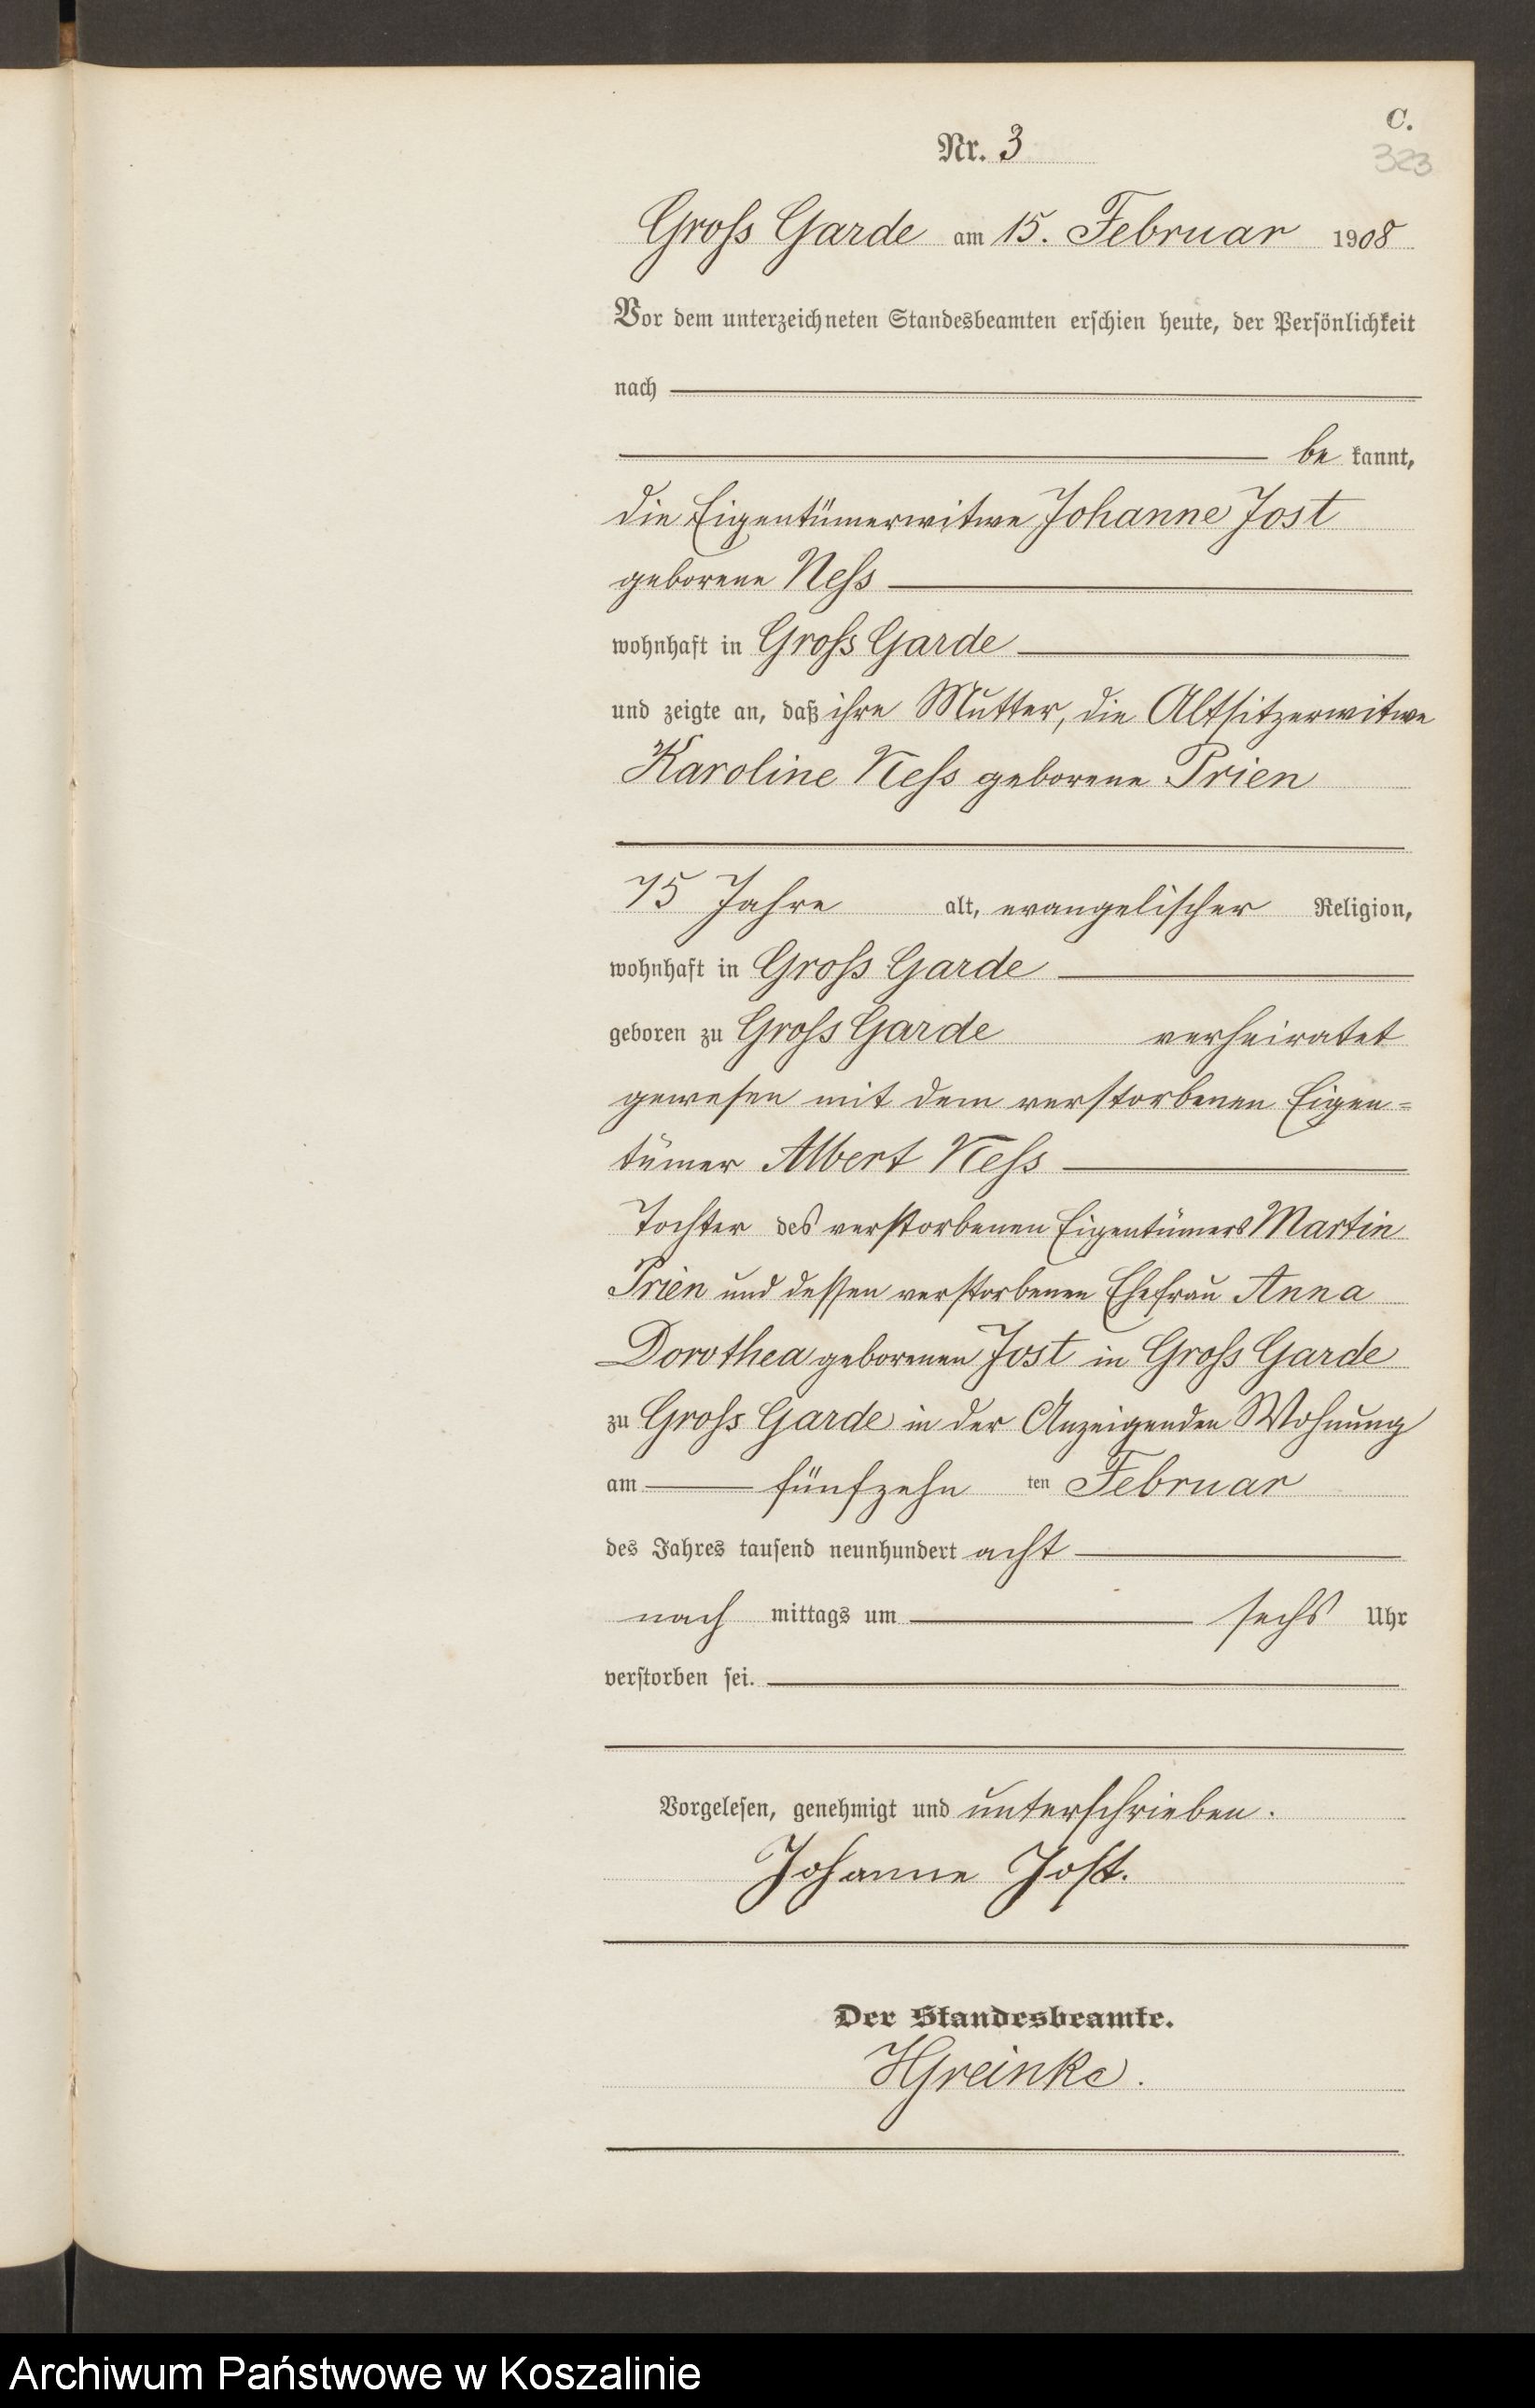 C.
Nr. 3
323
Gross Garde am 15. Februar 1908
Vor dem unterzeichneten Standesbeamten erschien heute, der Persönlichkeit
nach
be kannt,
die Eigentümerwitwe Johanne Jost
geborene Ness
wohnhaft in Gross Garde
und zeigte an, daß ihre Mutter, die Altsitzerwitwe
Karoline Ness geborene Prien
75 Jahre alt, evangelischer Religion,
wohnhaft in Gross Garde
geboren zu Gross Garde verheiratet
gewesen mit dem verstorbenen Eigen=
tümer Albert Ness
Tochter des verstorbenen Eigentümers Martin
Prien und dessen verstorbenen Ehefrau Anna
Dorothea geborenen Jost in Gross Garde
zu Gross Garde in der Anzeigenden Wohnung
am fünfzehn ten Februar
des Jahres tausend neunhundert acht
nach mittags um sechs Uhr
verstorben sei.
Vorgelesen, genehmigt und unterschrieben.
Johanne Jost.
Der Standesbeamte.
HGreinke.
Archiwum Państwowe w Koszalinie